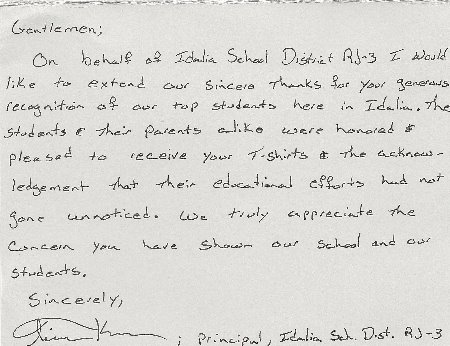 Gentlemen;
On behalf of Idalia School District RJ-3 I would
like to extend our sincere thanks for your generous
recognition of our top students here in Idalia. The
students & their parents alike were honored &
pleased to receive your T-shirts & the acknow-
ledgement that their educational efforts had not
gone unnoticed. We truly appreciate the
concern you have shown our school and our
students.
Sincerely,
; Principal, Idalia Sch. Dist. RJ-3